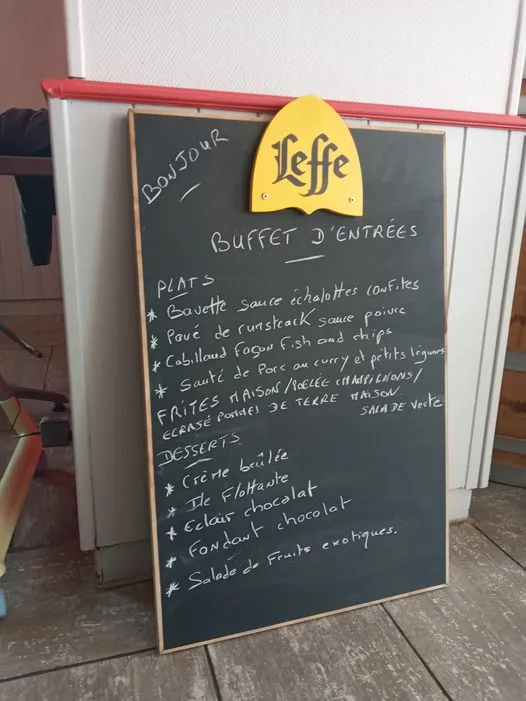 Leffe
BONJOUR
BUFFET D'ENTRÉES
PLATS
* Bavette sauce échalottes confites
* Pavé de rumsteack sauce poivre
* Cabillaud façon fish and chips
* Sauté de Porc au curry et petits légumes
FRITES MAISON/POÊLÉE CHAMPIGNONS/
ECRASÉ POMMES DE TERRE MAISON
SALADE verte
DESSERTS
* Crème brûlée
* Ile Flottante
* Eclair chocolat
* Fondant chocolat
* Salade de Fruits exotiques.